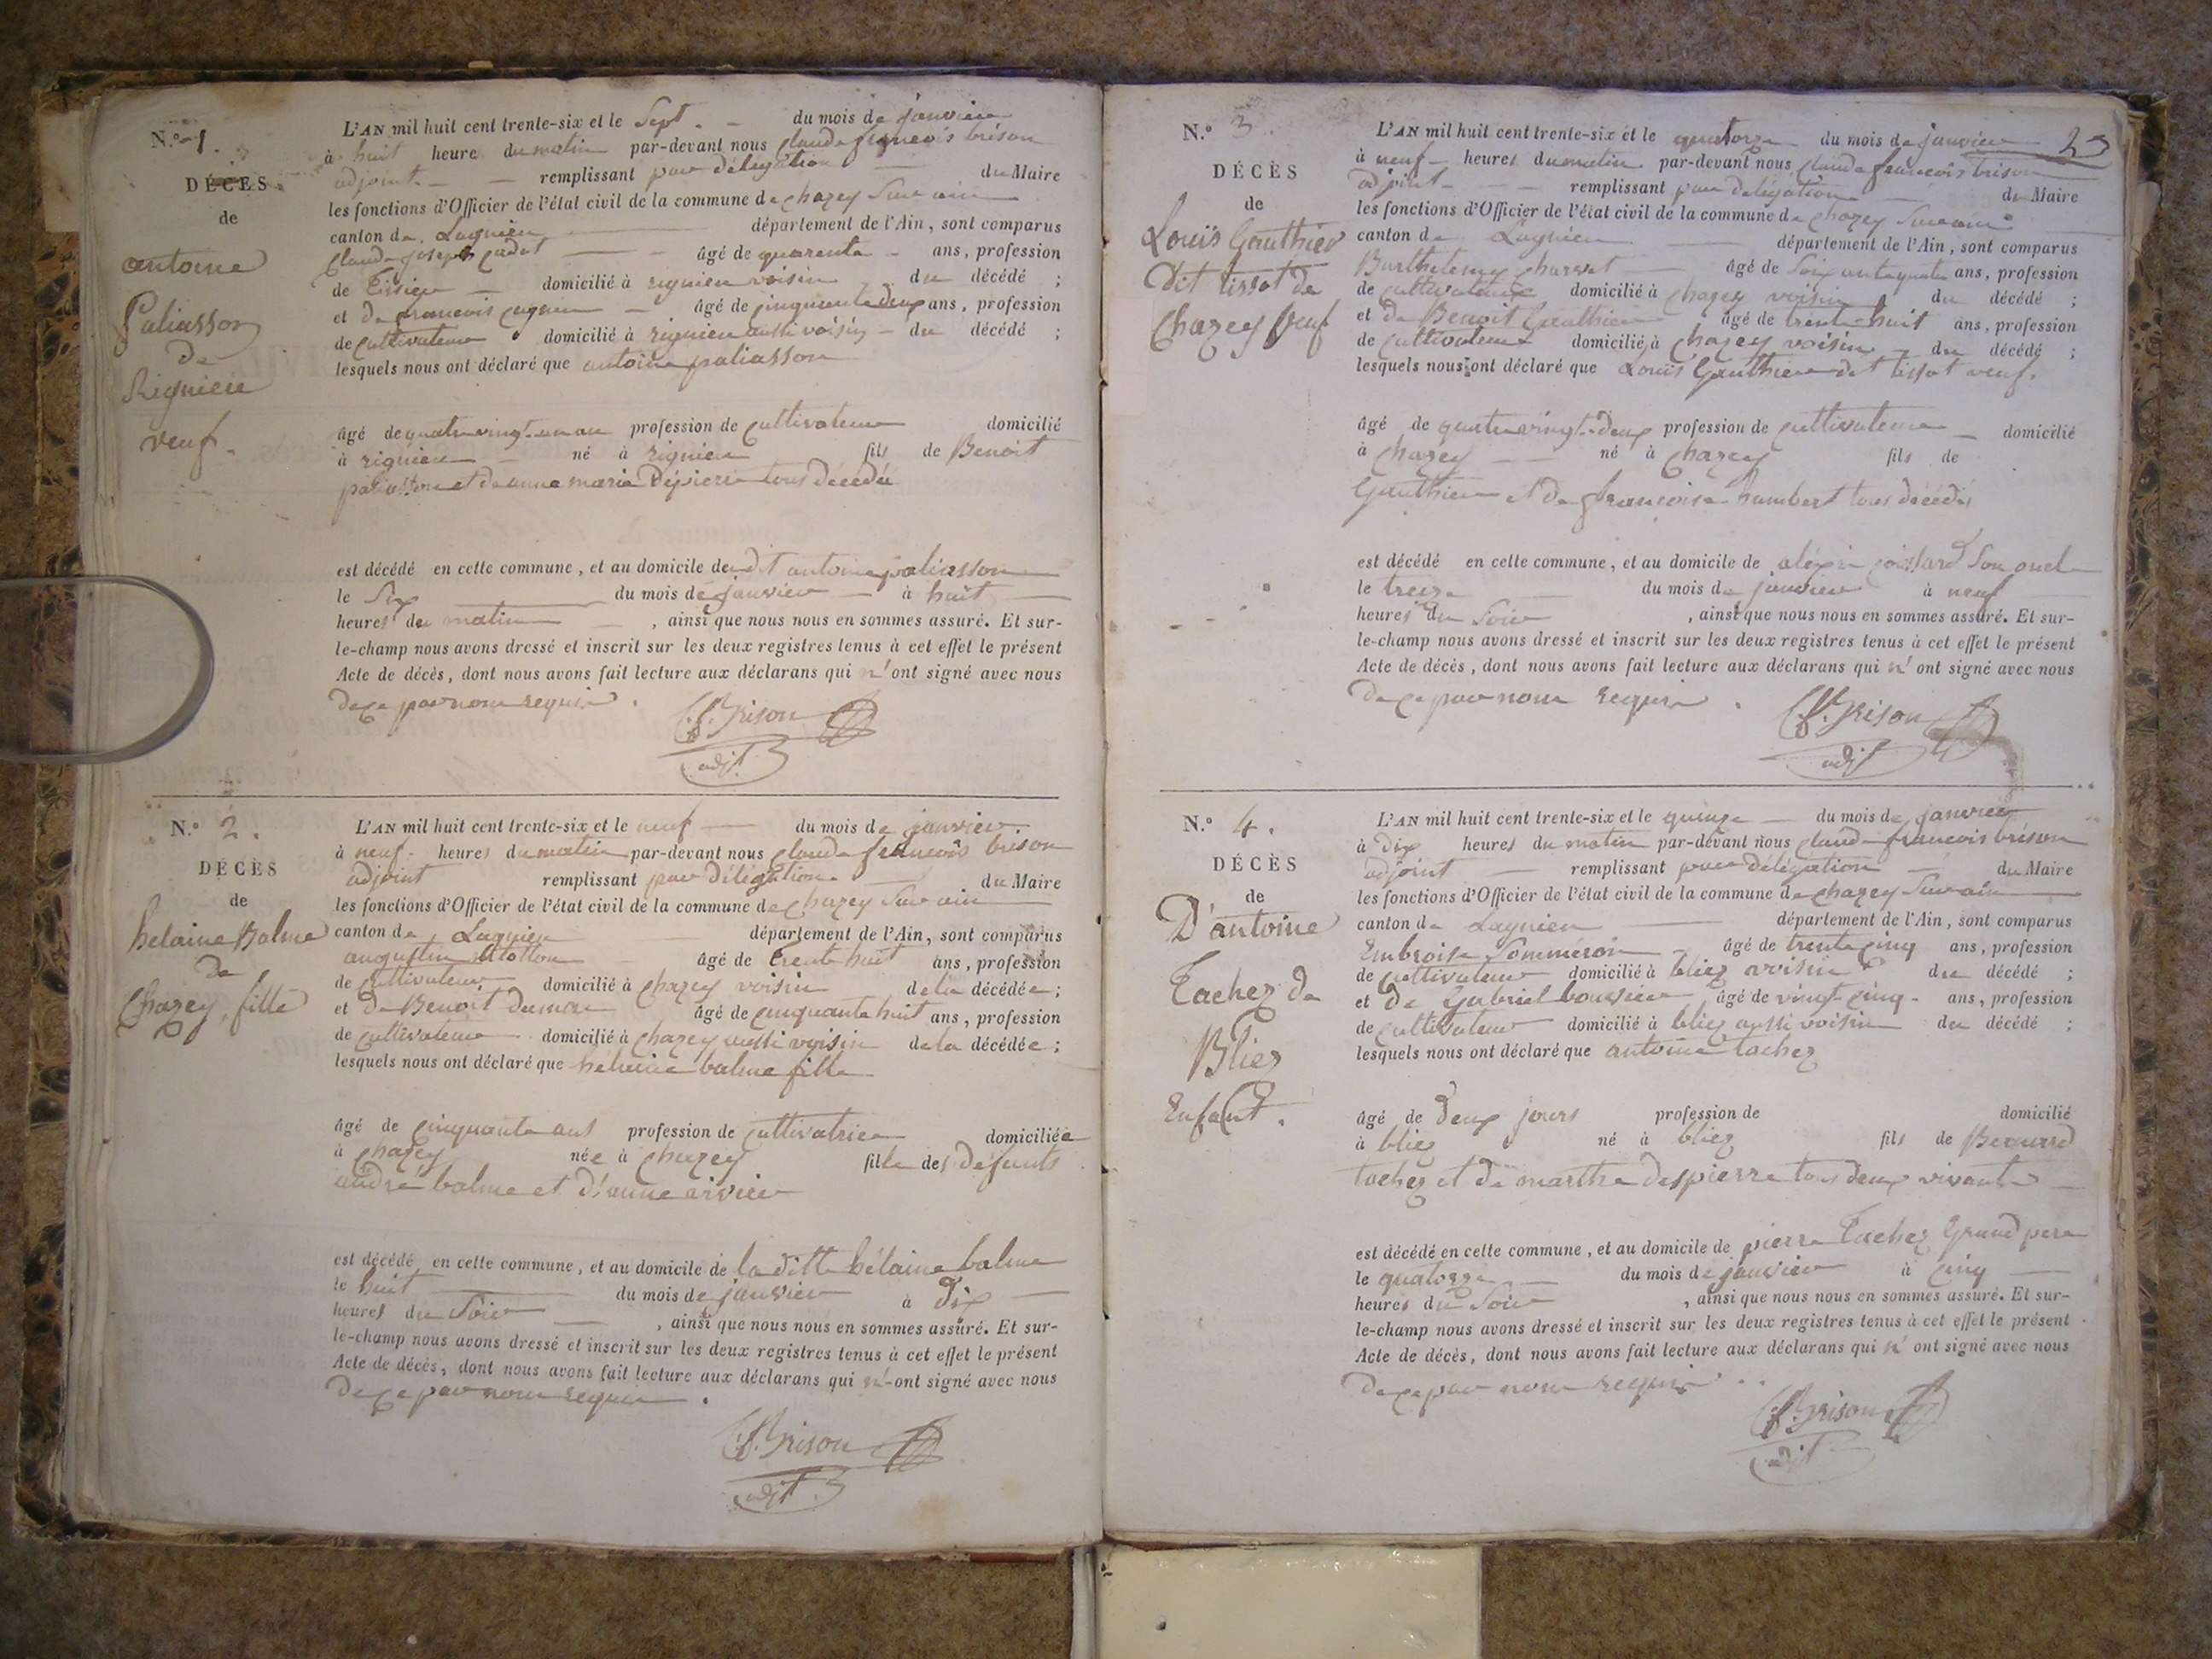 N.º 1.
DÉCÈS
de
antoine
Paliasson
de
Rignieu
veuf.
L'AN mil huit cent trente-six et le Sept. du mois de janvier
à huit heure du matin par-devant nous Claude françois brison
adjoint remplissant par délégation du Maire
les fonctions d'Officier de l'état civil de la commune de chazey Sur ain
canton de Lagnieu département de l'Ain, sont comparus
Claude joseph cadot âgé de quarente ans, profession
de Tissier domicilié à rignieu voisin du décédé ;
et de francois cugnin âgé de cinquante deux ans, profession
de cultivateur domicilié à rignieu aussi voisin du décédé ;
lesquels nous ont déclaré que antoine paliasson
âgé de quatrevingt-un an profession de cultivateur domicilié
à rignieu né à rignieu fils de Benoit
paliasson et de anne marie Dépierre tous décédé
est décédé en cette commune, et au domicile du dit antoine paliasson
le Six du mois de janvier à huit
heures du matin , ainsi que nous nous en sommes assuré. Et sur-
le-champ nous avons dressé et inscrit sur les deux registres tenus à cet effet le présent
Acte de décès, dont nous avons fait lecture aux déclarans qui n'ont signé avec nous
de ce par nous requis.
C.f. Brison
adjt
N.º 2.
DÉCÈS
de
helaine Balme
de
Chazey, fille
L'AN mil huit cent trente-six et le neuf du mois de janvier
à neuf heures du matin par-devant nous Claude francois brison
adjoint remplissant par délégation du Maire
les fonctions d'Officier de l'état civil de la commune de chazey Sur ain
canton de Lagnieu département de l'Ain, sont comparus
augustin âgé de trente huit ans, profession
de cultivateur domicilié à chazey voisin de la décédée ;
et de Benoit âgé de cinquante huit ans, profession
de cultivateur domicilié à chazey aussi voisin de la décédée ;
lesquels nous ont déclaré que helaine balme fille
âgé de cinquante ans profession de cultivatrice domiciliée
à chazey née à chazey fille des défunts
andré balme et d'anne rivier
est décédé en cette commune, et au domicile de la ditte hélaine balme
le huit du mois de janvier à dix
heures du Soir , ainsi que nous nous en sommes assuré. Et sur-
le-champ nous avons dressé et inscrit sur les deux registres tenus à cet effet le présent
Acte de décès, dont nous avons fait lecture aux déclarans qui n'ont signé avec nous
de ce par nous requis.
C.f. Brison
adjt
23
N.º 3.
DÉCÈS
de
Louis Gauthier
dit tissot de
Chazey veuf
L'AN mil huit cent trente-six et le quatorze du mois de janvier
à neuf heures du matin par-devant nous Claude francois brison
adjoint remplissant par délégation du Maire
les fonctions d'Officier de l'état civil de la commune de chazey Sur ain
canton de Lagnieu département de l'Ain, sont comparus
Barthelemy âgé de Soixantequatre ans, profession
de cultivateur domicilié à chazey voisin du décédé ;
et de Benoit Gauthier âgé de trente-huit ans, profession
de cultivateur domicilié à chazey voisin du décédé ;
lesquels nous ont déclaré que Louis Gauthier dit tissot veuf.
âgé de quatrevingt-deux profession de cultivateur domicilié
à chazey né à chazey fils de
Gauthier et de francoise humbert tous décédés
est décédé en cette commune, et au domicile de Son oncle
le treize du mois de janvier à neuf
heures du Soir , ainsi que nous nous en sommes assuré. Et sur-
le-champ nous avons dressé et inscrit sur les deux registres tenus à cet effet le présent
Acte de décès, dont nous avons fait lecture aux déclarans qui n'ont signé avec nous
de ce par nous requis.
C.f. Brison
adjt
N.º 4.
DÉCÈS
de
D'antoine
Tachez de
Bliez
Enfant.
L'AN mil huit cent trente-six et le quinze du mois de janvier
à dix heures du matin par-devant nous Claude francois brison
adjoint remplissant par délégation du Maire
les fonctions d'Officier de l'état civil de la commune de chazey Sur ain
canton de Lagnieu département de l'Ain, sont comparus
Embroise Sommeron âgé de trente cinq ans, profession
de cultivateur domicilié à bliez voisin du décédé ;
et de Gabriel boussier âgé de vingt-cinq ans, profession
de cultivateur domicilié à bliez aussi voisin du décédé ;
lesquels nous ont déclaré que antoine tachez
âgé de deux jours profession de domicilié
à bliez né à bliez fils de Bernard
tachez et de marthe despierre tous deux vivants
est décédé en cette commune, et au domicile de pierre Tachez Grand pere
le quatorze du mois de janvier à cinq
heures du Soir , ainsi que nous nous en sommes assuré. Et sur-
le-champ nous avons dressé et inscrit sur les deux registres tenus à cet effet le présent
Acte de décès, dont nous avons fait lecture aux déclarans qui n'ont signé avec nous
de ce par nous requis
C.f. Brison
adjt